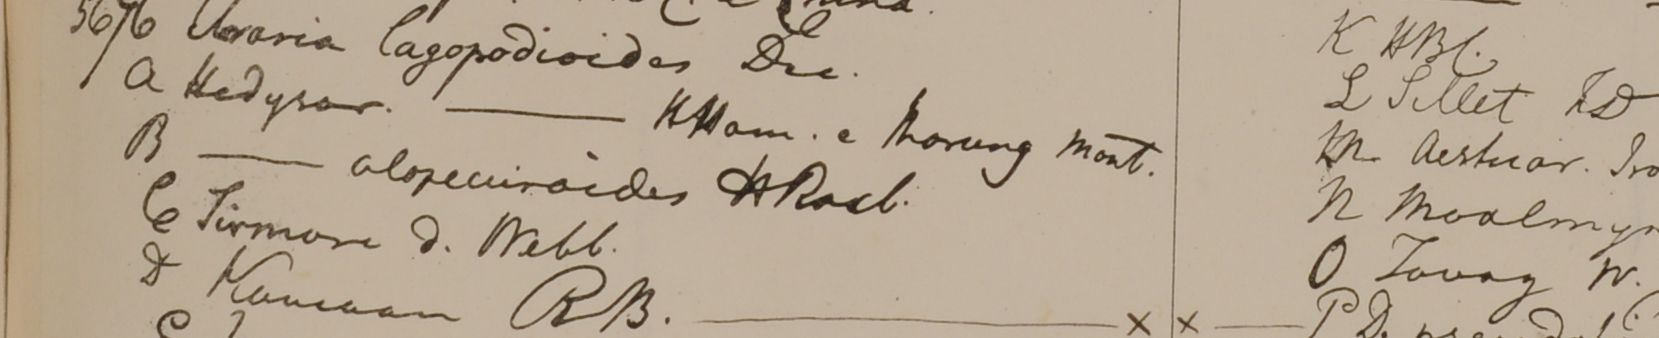 5676 Uraria lagopodioides Dec.
A Hedysar. ——— HHam. e Morung mont.
B ——— alopecuroides HRoxb.
C Sirmore d. Webb.
D Kamaon RB. ——— x
K HBC.
L Sillet FD
M Aestuar.
N Moalmyn
O Tavoy W.
x — P D.